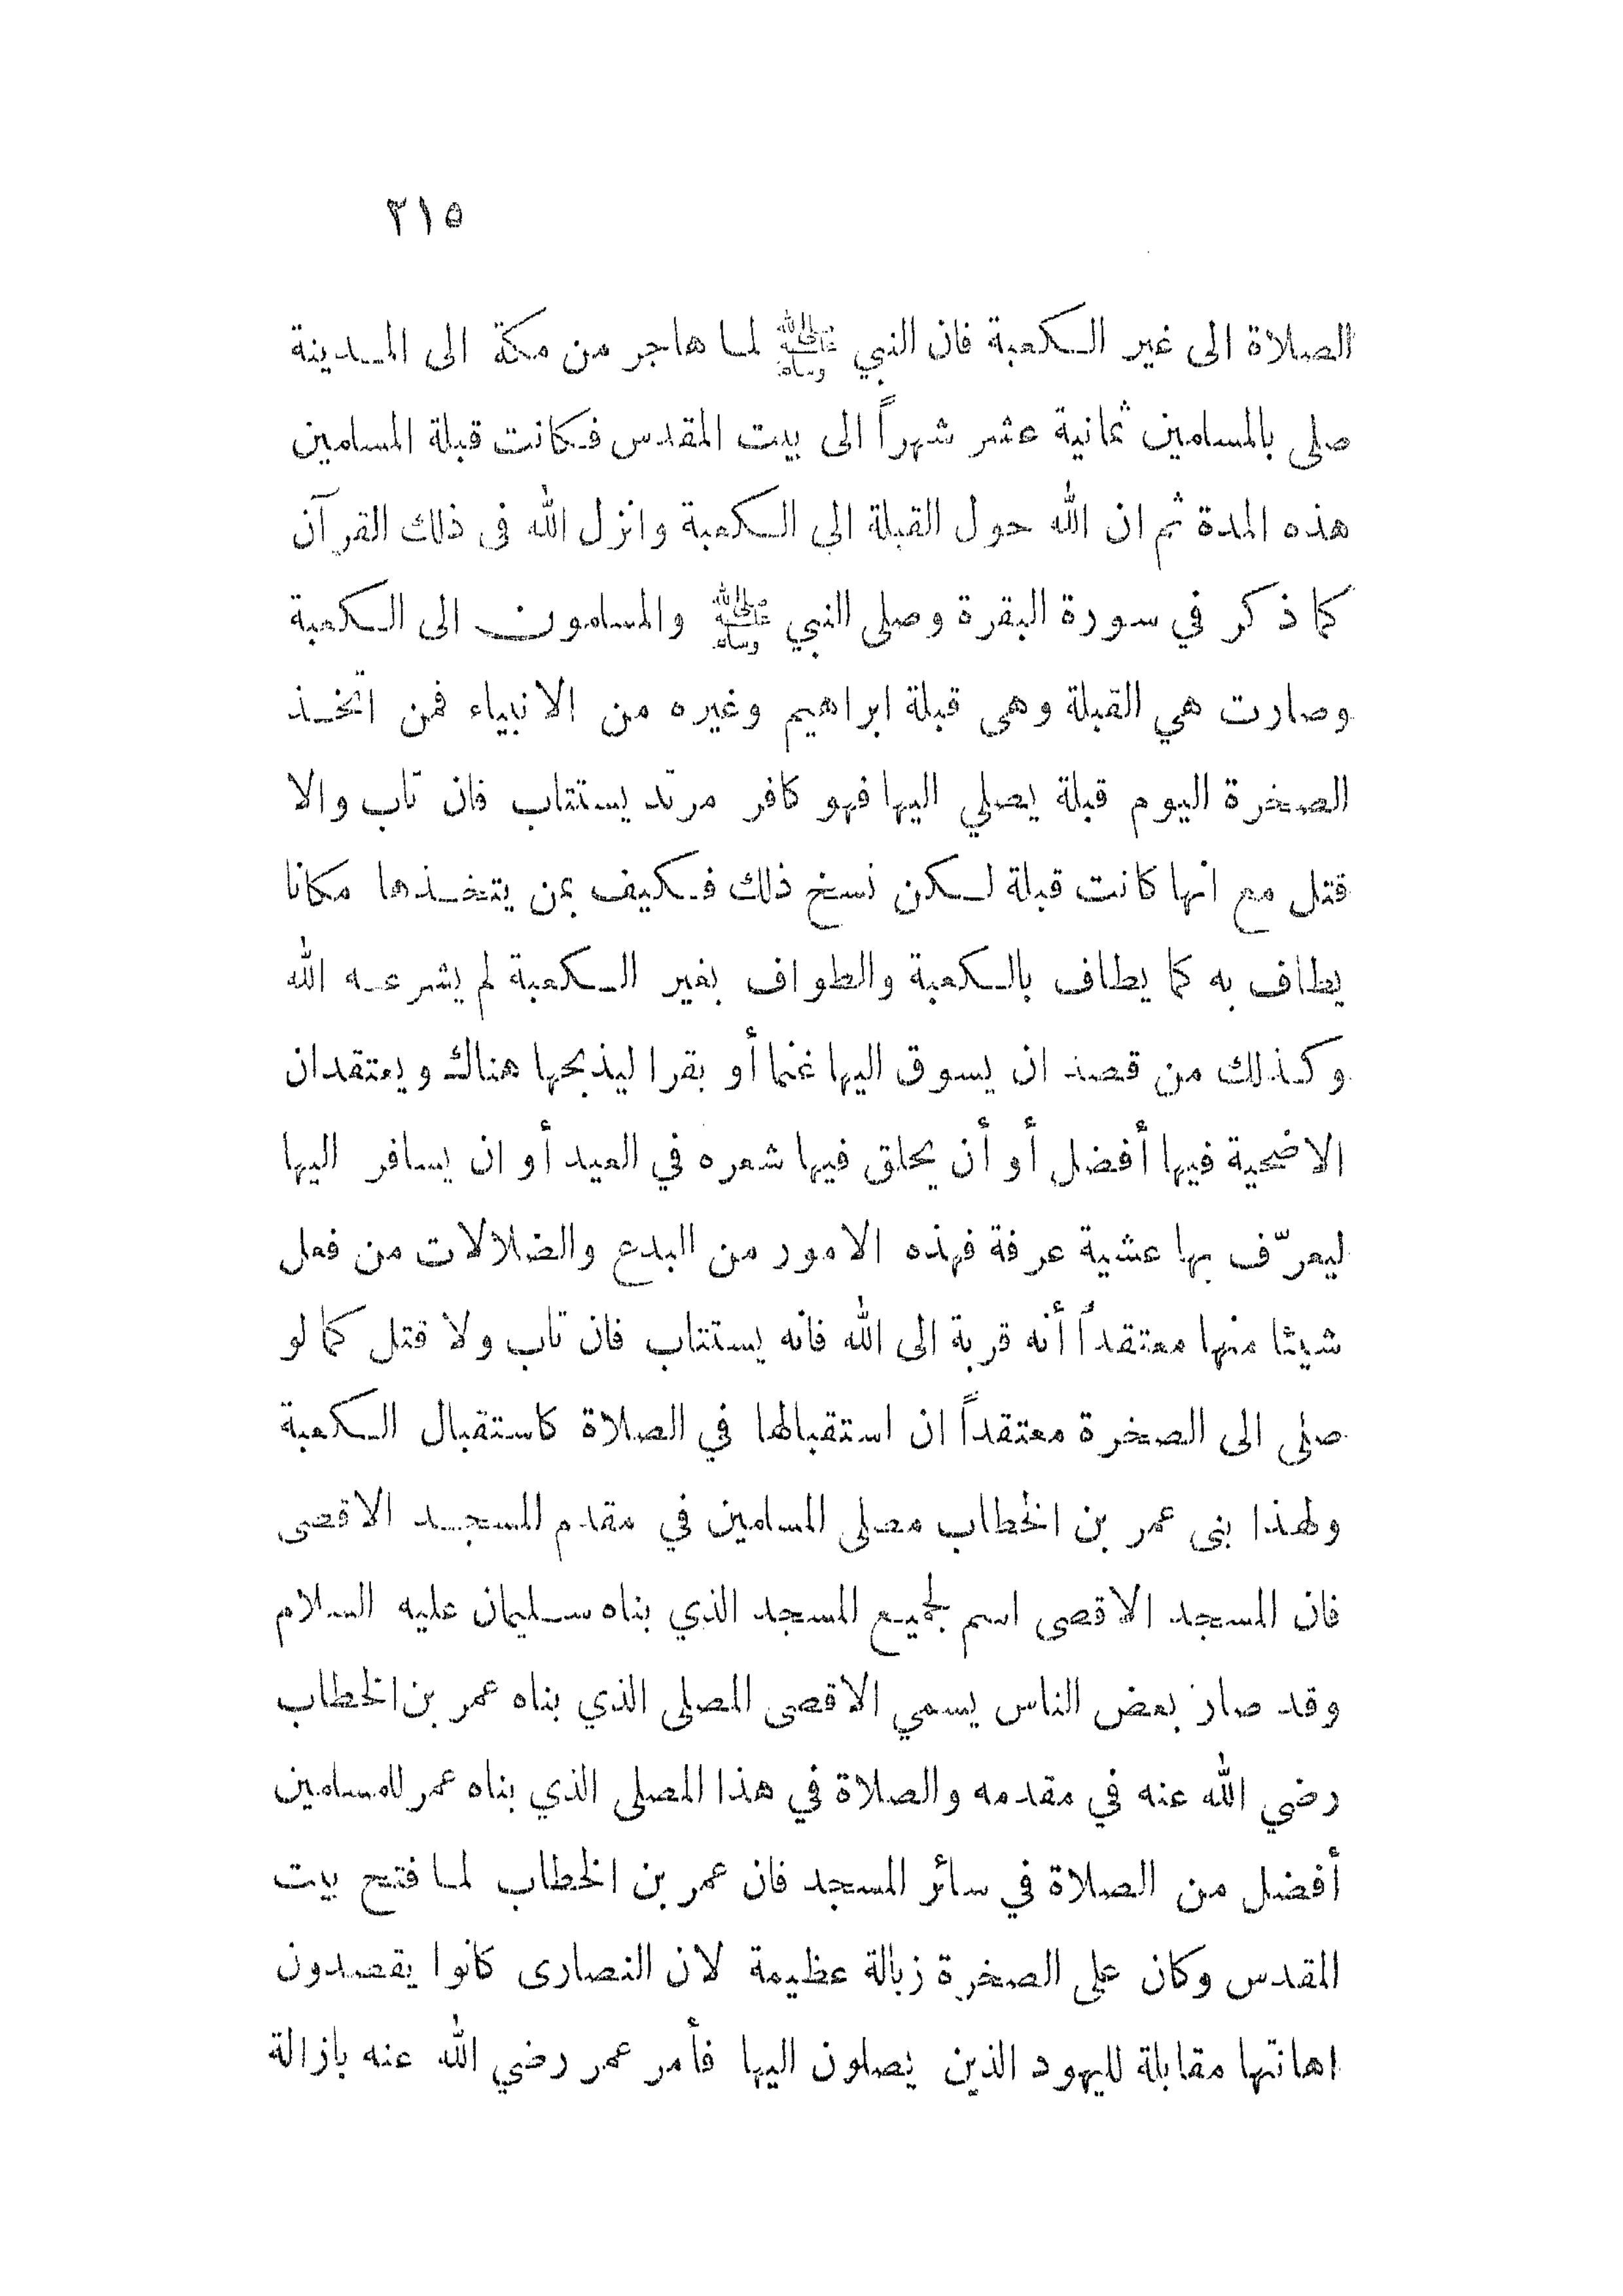 ٢١٥
الصلاة الى غير الكعبة فان النبي ﷺ لما هاجر من مكة الى المدينة
صلى بالمسلمين ثمانية عشر شهراً الى بيت المقدس فكانت قبلة المسلمين
هذه المدة ثم ان الله حول القبلة الى الكعبة وانزل الله فى ذلك القرآن
كما ذكر في سورة البقرة وصلى النبي ﷺ والمسلمون الى الكعبة
وصارت هي القبلة وهى قبلة ابراهيم وغيره من الانبياء فمن اتخذ
الصخرة اليوم قبلة يصلي اليها فهو كافر مرتد يستتاب فان تاب والا
قتل مع انها كانت قبلة لكن نسخ ذلك فكيف بمن يتخذها مكانا
يطاف به كما يطاف بالكعبة والطواف بغير الكعبة لم يشرعه الله
وكذلك من قصد ان يسوق اليها غنما أو بقرا ليذبحها هناك ويعتقدان
الاضحية فيها أفضل أو أن يحلق فيها شعره في العيد أو ان يسافر اليها
ليعرّف بها عشية عرفة فهذه الامور من البدع والضلالات من فعل
شيئا منها معتقداً أنه قربة الى الله فانه يستتاب فان تاب ولا قتل كما لو
صلى الى الصخرة معتقداً ان استقبالها في الصلاة كاستقبال الكعبة
ولهذا بنى عمر بن الخطاب مصلى المسلمين في مقدم المسجد الاقصى
فان المسجد الاقصى اسم لجميع المسجد الذي بناه سليمان عليه السلام
وقد صار بعض الناس يسمي الاقصى المصلى الذي بناه عمر بن الخطاب
رضي الله عنه في مقدمه والصلاة في هذا المصلى الذي بناه عمر للمسلمين
أفضل من الصلاة في سائر المسجد فان عمر بن الخطاب لما فتح بيت
المقدس وكان على الصخرة زبالة عظيمة لان النصارى كانوا يقصدون
اهانتها مقابلة لليهود الذين يصلون اليها فأمر عمر رضي الله عنه بازالة